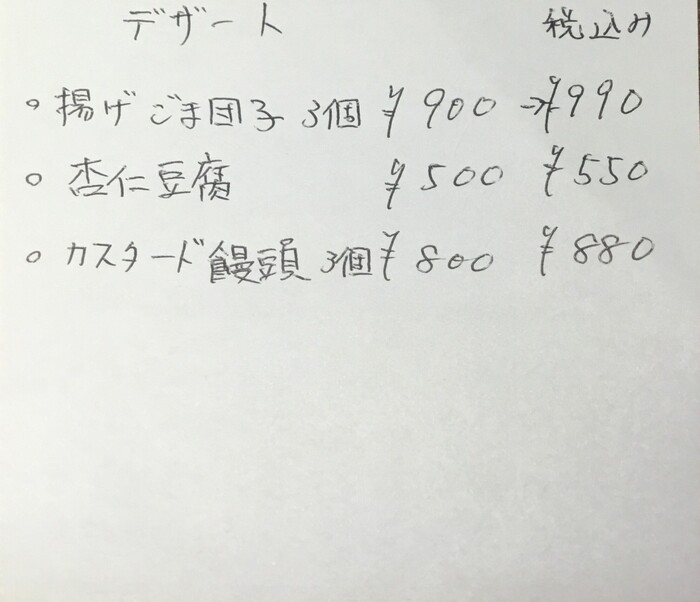 デザート 税込み
○ 揚げごま団子 3個 ¥900 → ¥990
○ 杏仁豆腐 ¥500 ¥550
○ カスタード饅頭 3個 ¥800 ¥880